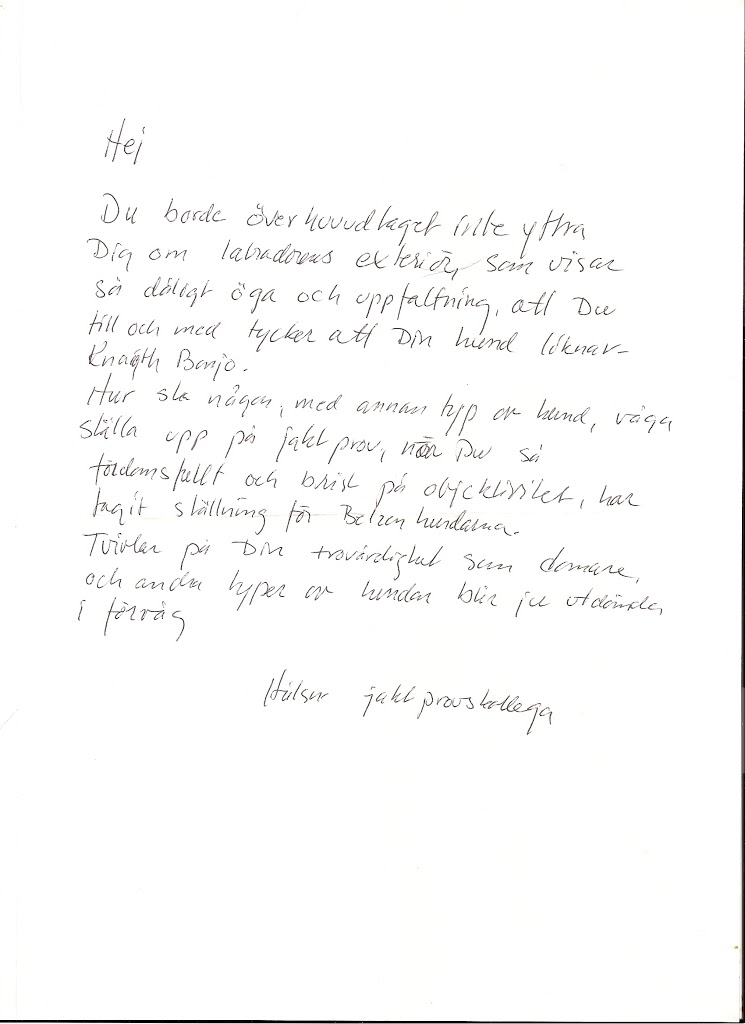 Hej
Du borde överhuvudtaget inte yttra
Dig om labradorens exteriör, som visar
så dåligt öga och uppfattning, att Du
till och med tycker att Din hund liknar
Knaith Banjo.
Hur ska någon, med annan typ av hund, våga
ställa upp på jaktprov, när Du så
fördomsfullt och brist på objektivitet, har
tagit ställning för hundarna.
Tvivlar på Din trovärdighet som domare,
och andra typer av hundar blir ju utdömda
i förväg
Hälsar jaktprovskollega